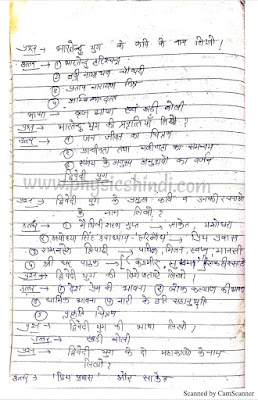 प्रश्न → भारतेन्दु युग के कवि के नाम लिखो।
उत्तर → ① भारतेन्दु हरिश्चन्द्र
② बद्री नारायण चौधरी
③ प्रताप नारायण मिश्र
④ अम्बिकादत्त
भाषा → ब्रज भाषा एवं खड़ी बोली
प्रश्न → भारतेन्दु युग की प्रवृत्तियाँ लिखो?
उत्तर → ① जन जीवन का चित्रण
② प्राचीनता तथा नवीनता का समन्वय
③ के अनुरूप का वर्णन
द्विवेदी युग
www.physicshindi.com
प्रश्न → द्विवेदी युग के प्रमुख कवि व उनकी रचनाओं
के नाम लिखो?
उत्तर → ① मैथिलीशरण गुप्त → साकेत, यशोधरा
② अयोध्या सिंह उपाध्याय 'हरिऔध' → प्रिय प्रवास
③ रामनरेश त्रिपाठी → पथिक, मिलन, स्वप्न, मानसी
④ श्रीधर पाठक → कश्मीर
प्रश्न → द्विवेदी युग की विशेषताएं लिखो।
उत्तर → ① देश प्रेम की भावना ② लोक कल्याण की भावना
③ धार्मिक भावना ④ नारी के प्रति सहानुभूति
⑤ प्रकृति चित्रण
प्रश्न → द्विवेदी युग की भाषा लिखो।
उत्तर → खड़ी बोली
प्रश्न → द्विवेदी युग के दो महाकाव्यों के नाम
लिखो?
उत्तर → 'प्रिय प्रवास' और साकेत
Scanned by CamScanner